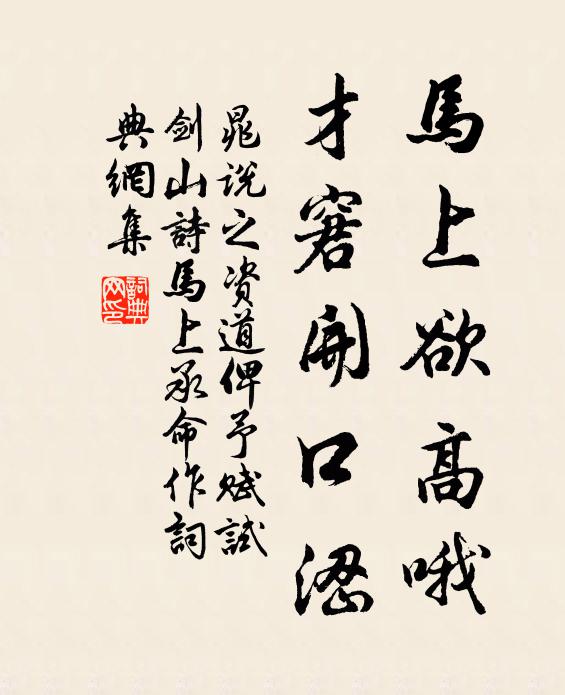 馬上欲高哦
才窘開口澀
晁說之資道俾予賦試
劍山詩馬上承命作詞
典網集
詞典網印